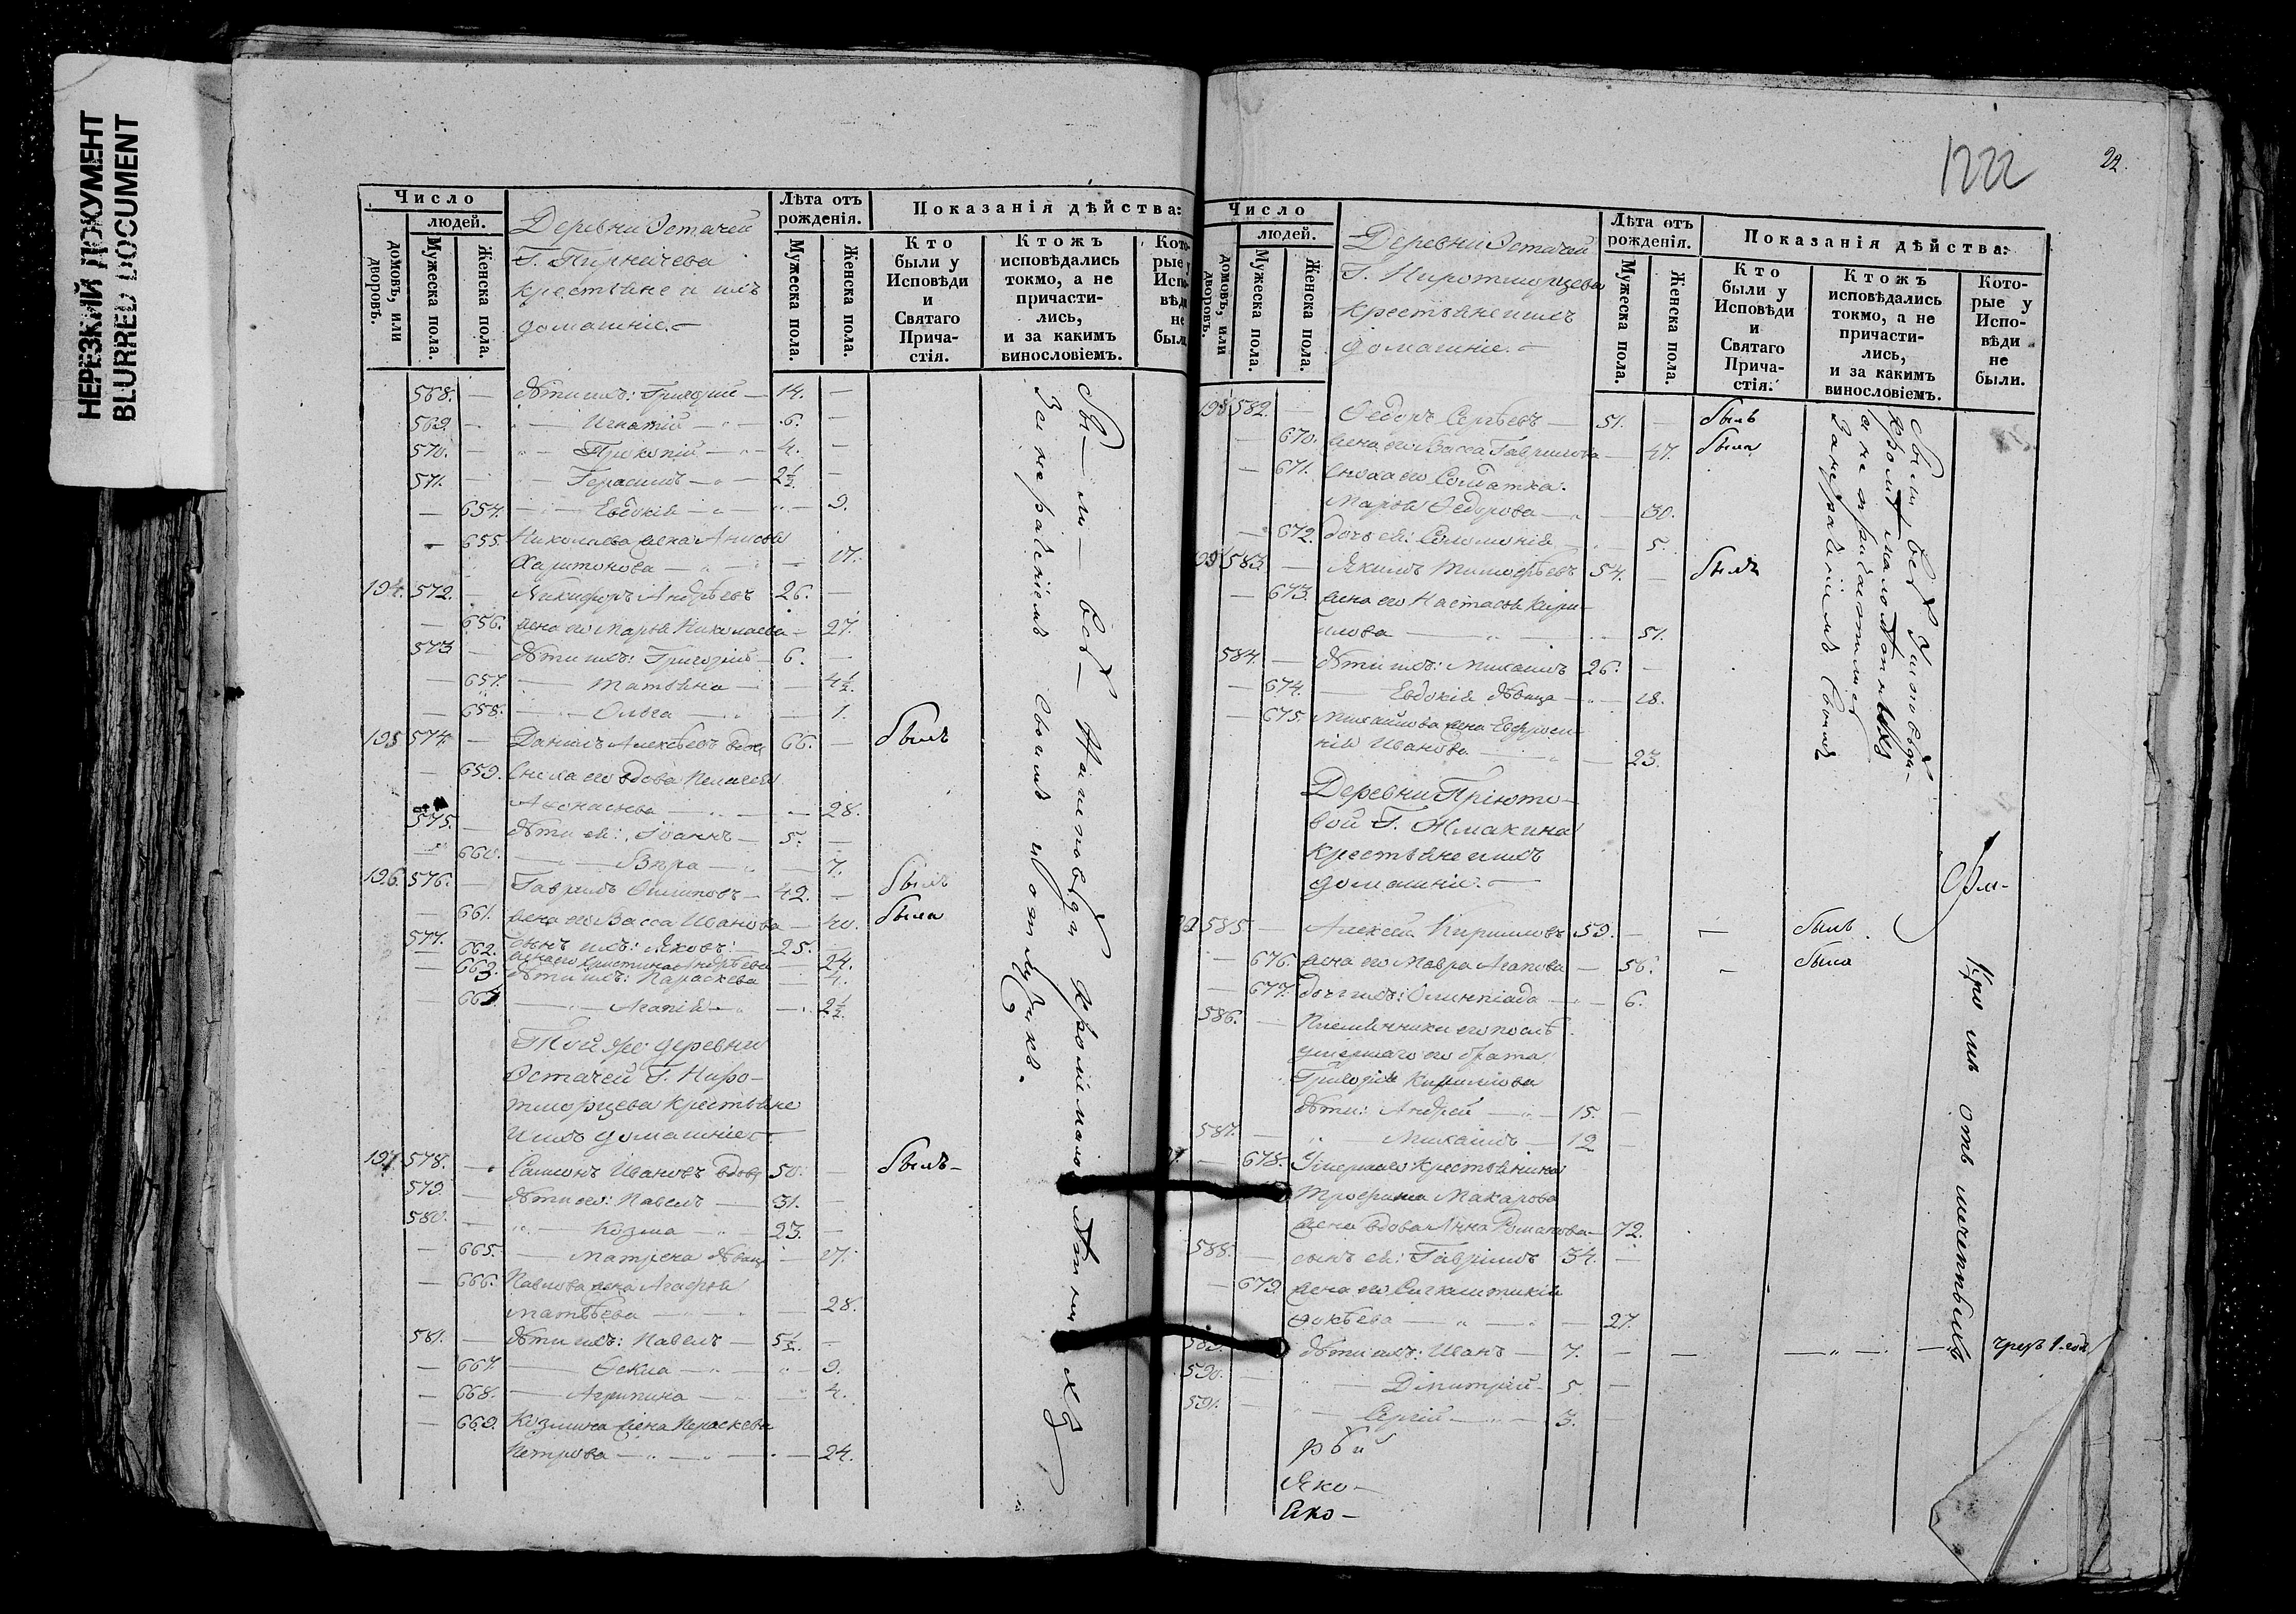 НЕРЕЗКИЙ ДОКУМЕНТ
BLURRED DOCUMENT
Число
людей.
домовъ, или дворовъ.
Мужеска пола.
Женска пола.
Деревни Остачей
Г.
крестьяне и ихъ
домашніе.
Лѣта отъ рожденія.
Мужеска пола.
Женска пола.
Показанія дѣйства:
Кто были у Исповѣди и Святаго Прича-стія.
Ктожъ исповѣдались токмо, а не причасти-лись, и за какимъ винословіемъ.
Кото-рые у Испо-вѣди не были.
568. — дѣти ихъ: Григорій — 14. —
569. — Игнатій — 6. —
570. — Прокопій — 4. —
571. — Герасимъ — 2½. —
— 654. — Евдокія — 9.
— 655. Николаева жена Анисья
Харитонова — 17.
194. 572. — Никифоръ Андрѣевъ 26. —
— 656. жена его Марья Николаева — 27.
573 — дѣти ихъ: Григорій — 6. —
— 657. — Татьяна — 4½.
— 658. — Ольга — 1.
195 574. — Данилъ Алексѣевъ вдов 66. — былъ
— 659. Сноха его вдова Пелагея
Аѳонасьева — 28.
575. — дѣти ей: Іоаннъ — 5. —
— 660. — Вѣра — 7.
196. 576. — Гаврилъ Филиповъ — 42. — былъ
— 661. жена его Васса Иванова — 40. была
577. — сынъ ихъ: Яковъ — 25. —
— 662. жена его Христина Андрѣева — 24.
— 663. дѣти ихъ: Параскева — 4.
— 664 — Агапія — 2½.
Той же деревни
Остачей Г. Ниро-
тморцева крестьяне
и ихъ домашніе
197 578. — Самсонъ Ивановъ вдов 50. — былъ —
579. — дѣти его: Павелъ — 31. —
580. — Козма — 23. —
— 665. — Матрена дѣвица — 17.
— 666. Павлова жена Агафья
Матвѣева — 28.
581. — дѣти ихъ: Павелъ — 5½. —
— 667. — Ѳекла — 9.
— 668. — Агрипина — 4.
— 669. Козмина жена Параскева
Петрова — 24.
бы — ли — всѣ — На исповѣди кромѣ малолѣтнихъ
За нераденіемъ своимъ и отлучкѣ.
1222
22
Число
людей.
домовъ, или дворовъ.
Мужеска пола.
Женска пола.
Деревни Остачей
Г. Ниротморцева
крестьяне и ихъ
домашніе.
Лѣта отъ рожденія.
Мужеска пола.
Женска пола.
Показанія дѣйства:
Кто были у Исповѣди и Святаго Прича-стія.
Ктожъ исповѣдались токмо, а не причасти-лись, и за какимъ винословіемъ.
Кото-рые у Испо-вѣди не были.
198 582. — Ѳедоръ Сергѣевъ — 51. — былъ
— 670. жена его Васса Гаврилова — 47. была
— 671. сноха его Солдатка
Марья Ѳедорова — 30.
— 672. дочь ей: Соломонія — 5.
199 583 — Якимъ Тимофѣевъ 54. — былъ
— 673. жена его Настасья Кири-
лова — 51.
584. — дѣти ихъ: Михаилъ 26. —
— 674. — Евдокія дѣвица — 18.
— 675. Михайлова жена Евфроси-
нія Иванова — 23.
были всѣ У исповѣди
кромѣ малолѣтнихъ
а не причастились
За нераденіемъ своимъ
Деревни Пріюто-
вой Г. Жмакина
крестьяне и ихъ
домашніе.
585. — Алексѣй Кириловъ 59. — — былъ
— 676. жена его Мавра Агапова — 56. — была
— 677. дочь ихъ: Олимпіада — 6.
586. — Племянники его послѣ
умершаго его брата
Григорія Кирилова
дѣти: Андрей — 15. —
587. — Михаилъ — 12 —
— 678. Умершаго крестьянина
Трофима Макарова
жена вдова Анна Романова — 72.
588. — сынъ ей: Гаврилъ 34. —
— 679 жена его Сигклитикія
Фокѣева — 27.
589. — дѣти ихъ: Иванъ — 7. — — — чрезъ 1. годъ
590. — Димитрій — 5. —
591. — Сергій — 3.
Кро мѣ отъ меченныхъ
рбй
Яко —
Яко —